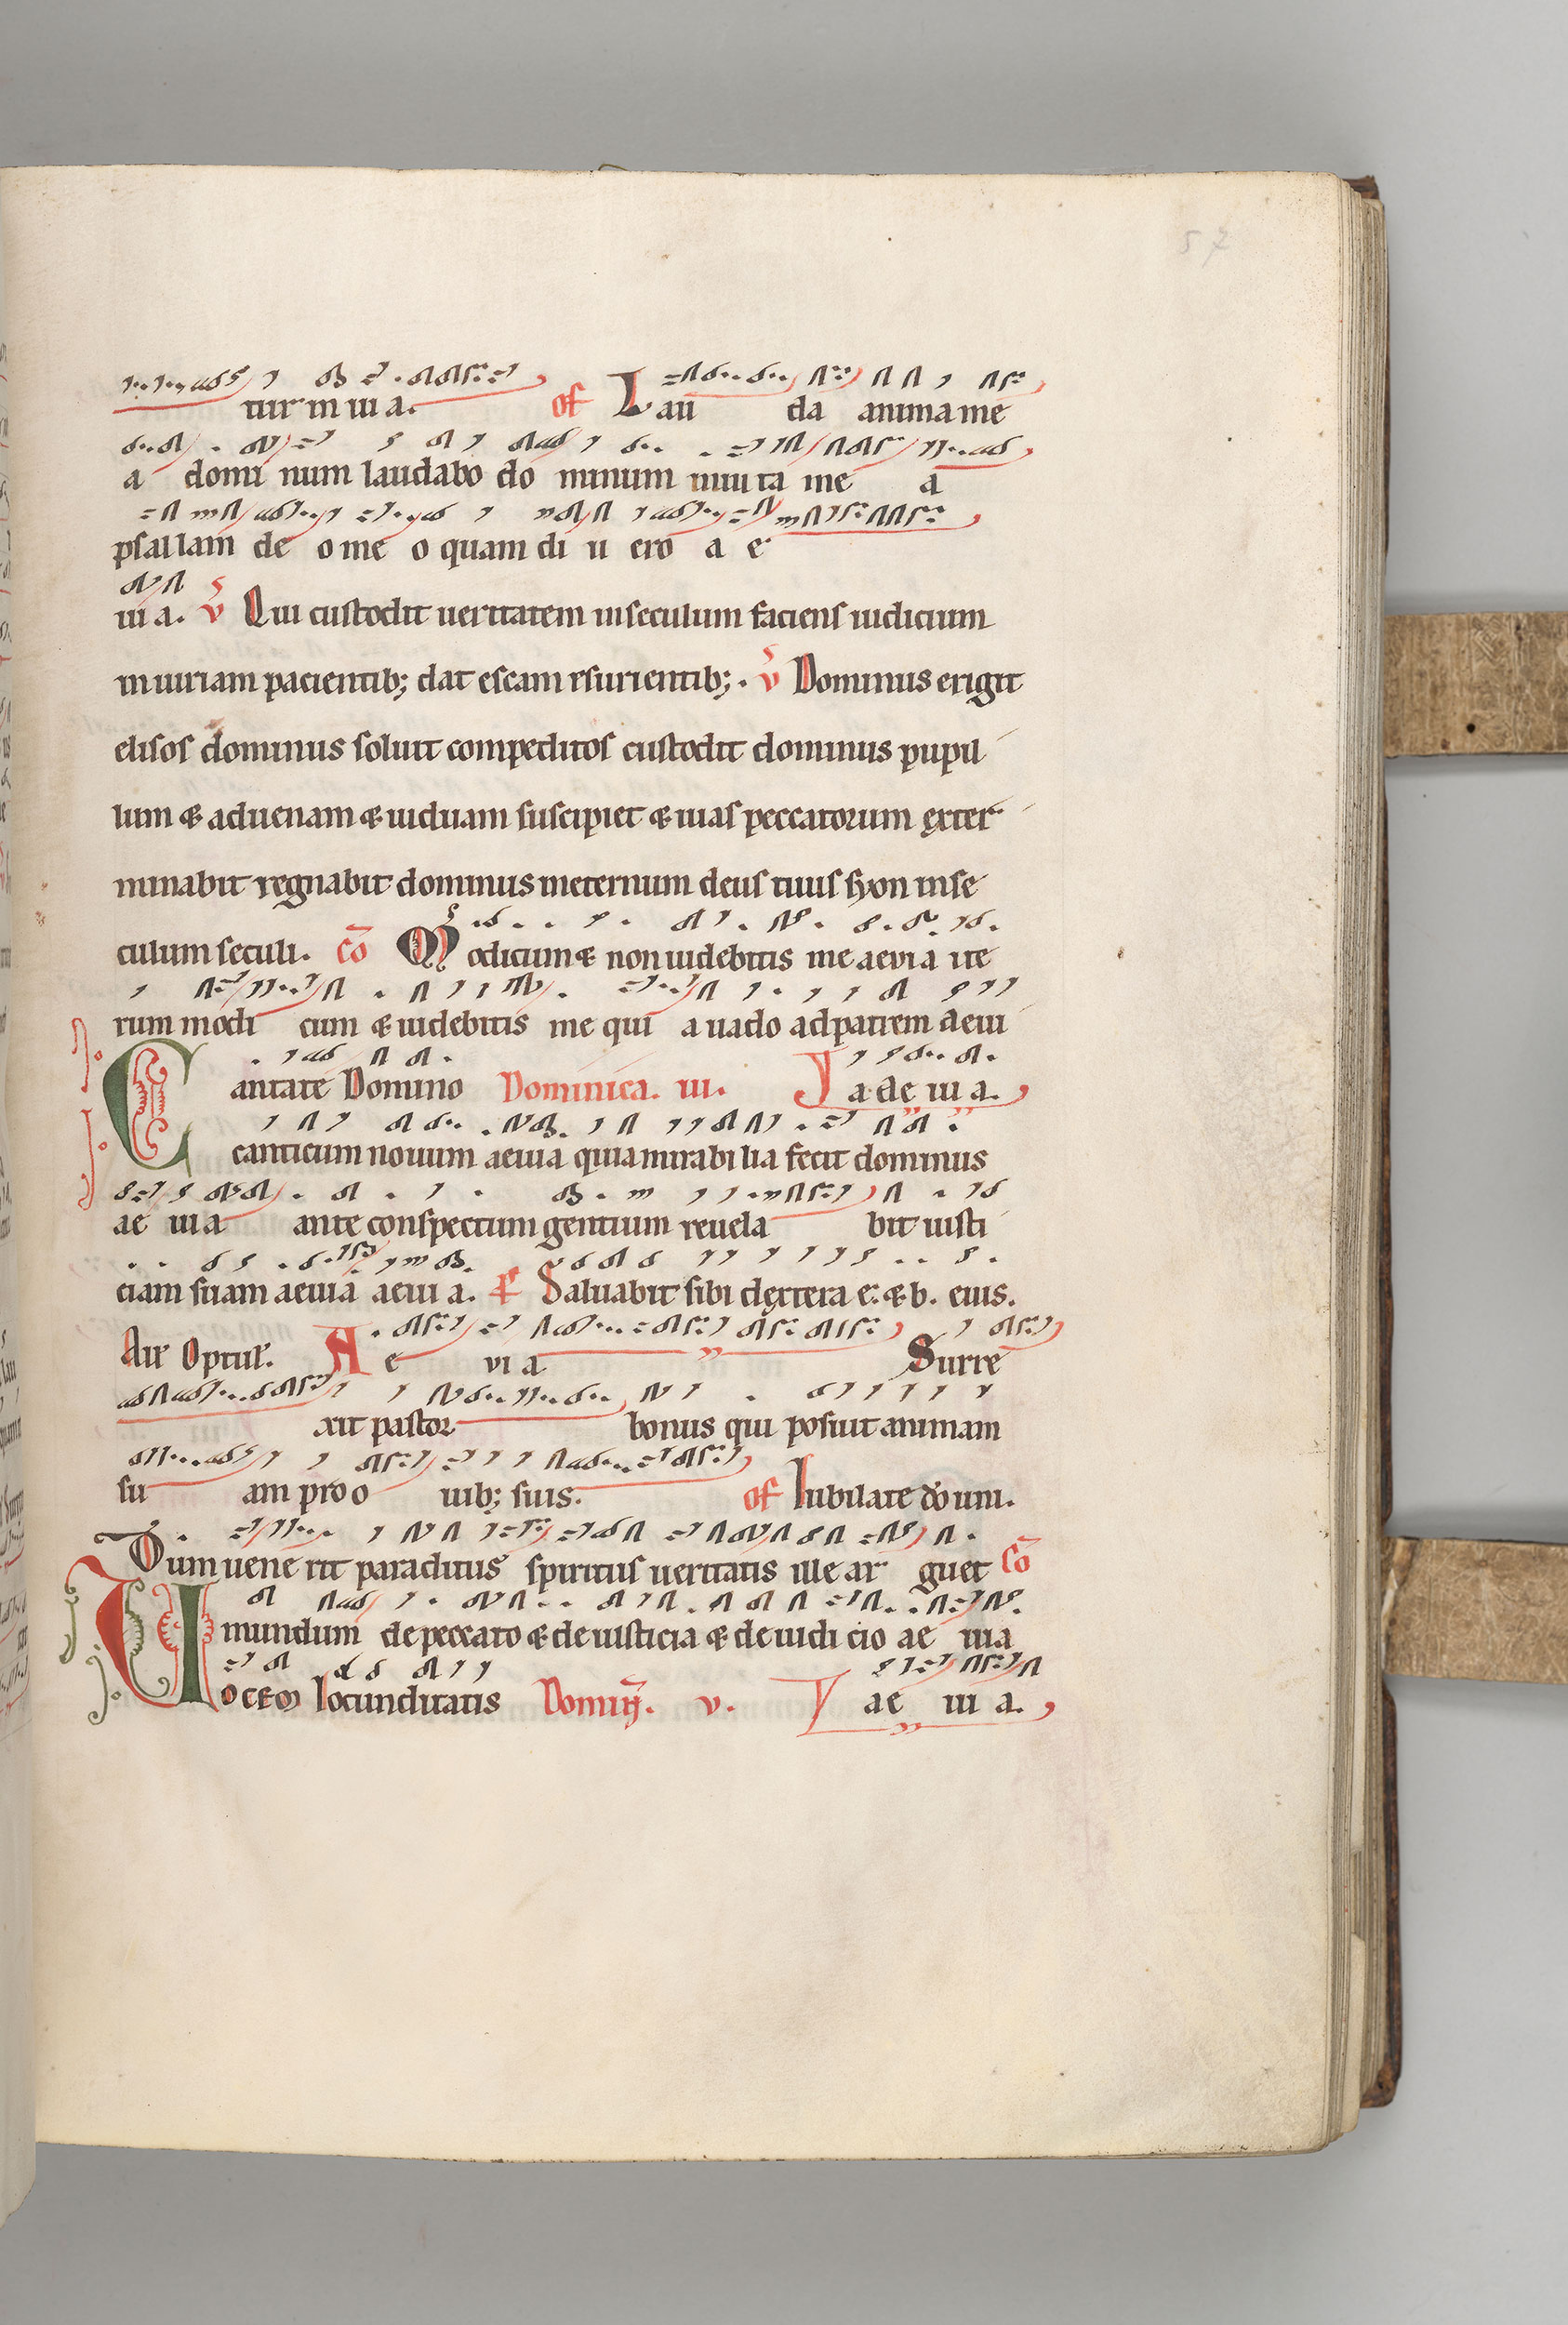 57
tur in uia. of Lau da anima me
a domi num laudabo do minum inuita me a
psallam de o me o quam di u ero a e
uia. v Qui custodit ueritatem inseculum faciens iudicium
iniuriam pacientib; dat escam esurientib;. v Dominus erigit
elisos dominus soluit compeditos custodit dominus pupil
lum & aduenam & uiduam suscipiet & uias peccatorum exter
minabit regnabit dominus ineternum deus tuus syon inse
culum seculi. co Modicum & non uidebitis me aeuia ite
rum modi cum & uidebitis me qui a uado adpatrem aeui
Cantate Domino Dominica. iii. a de uia.
canticum nouum aeuia quia mirabilia fecit dominus
ae uia ante conspectum gentium reuela bit iusti
ciam suam aeuia aeuia. Ps Saluabit sibi dextera e. & b. eius.
Air Optul. A e via Surre
xit pastor bonus qui posuit animam
su am pro o uib; suis. of Iubilate do uni.
Dum uene rit paraclitus spiritus ueritatis ille ar guet co
mundum de peccato & de iusticia & de iudi cio ae uia
Uocem Iocunditatis Domin. v. ae uia.